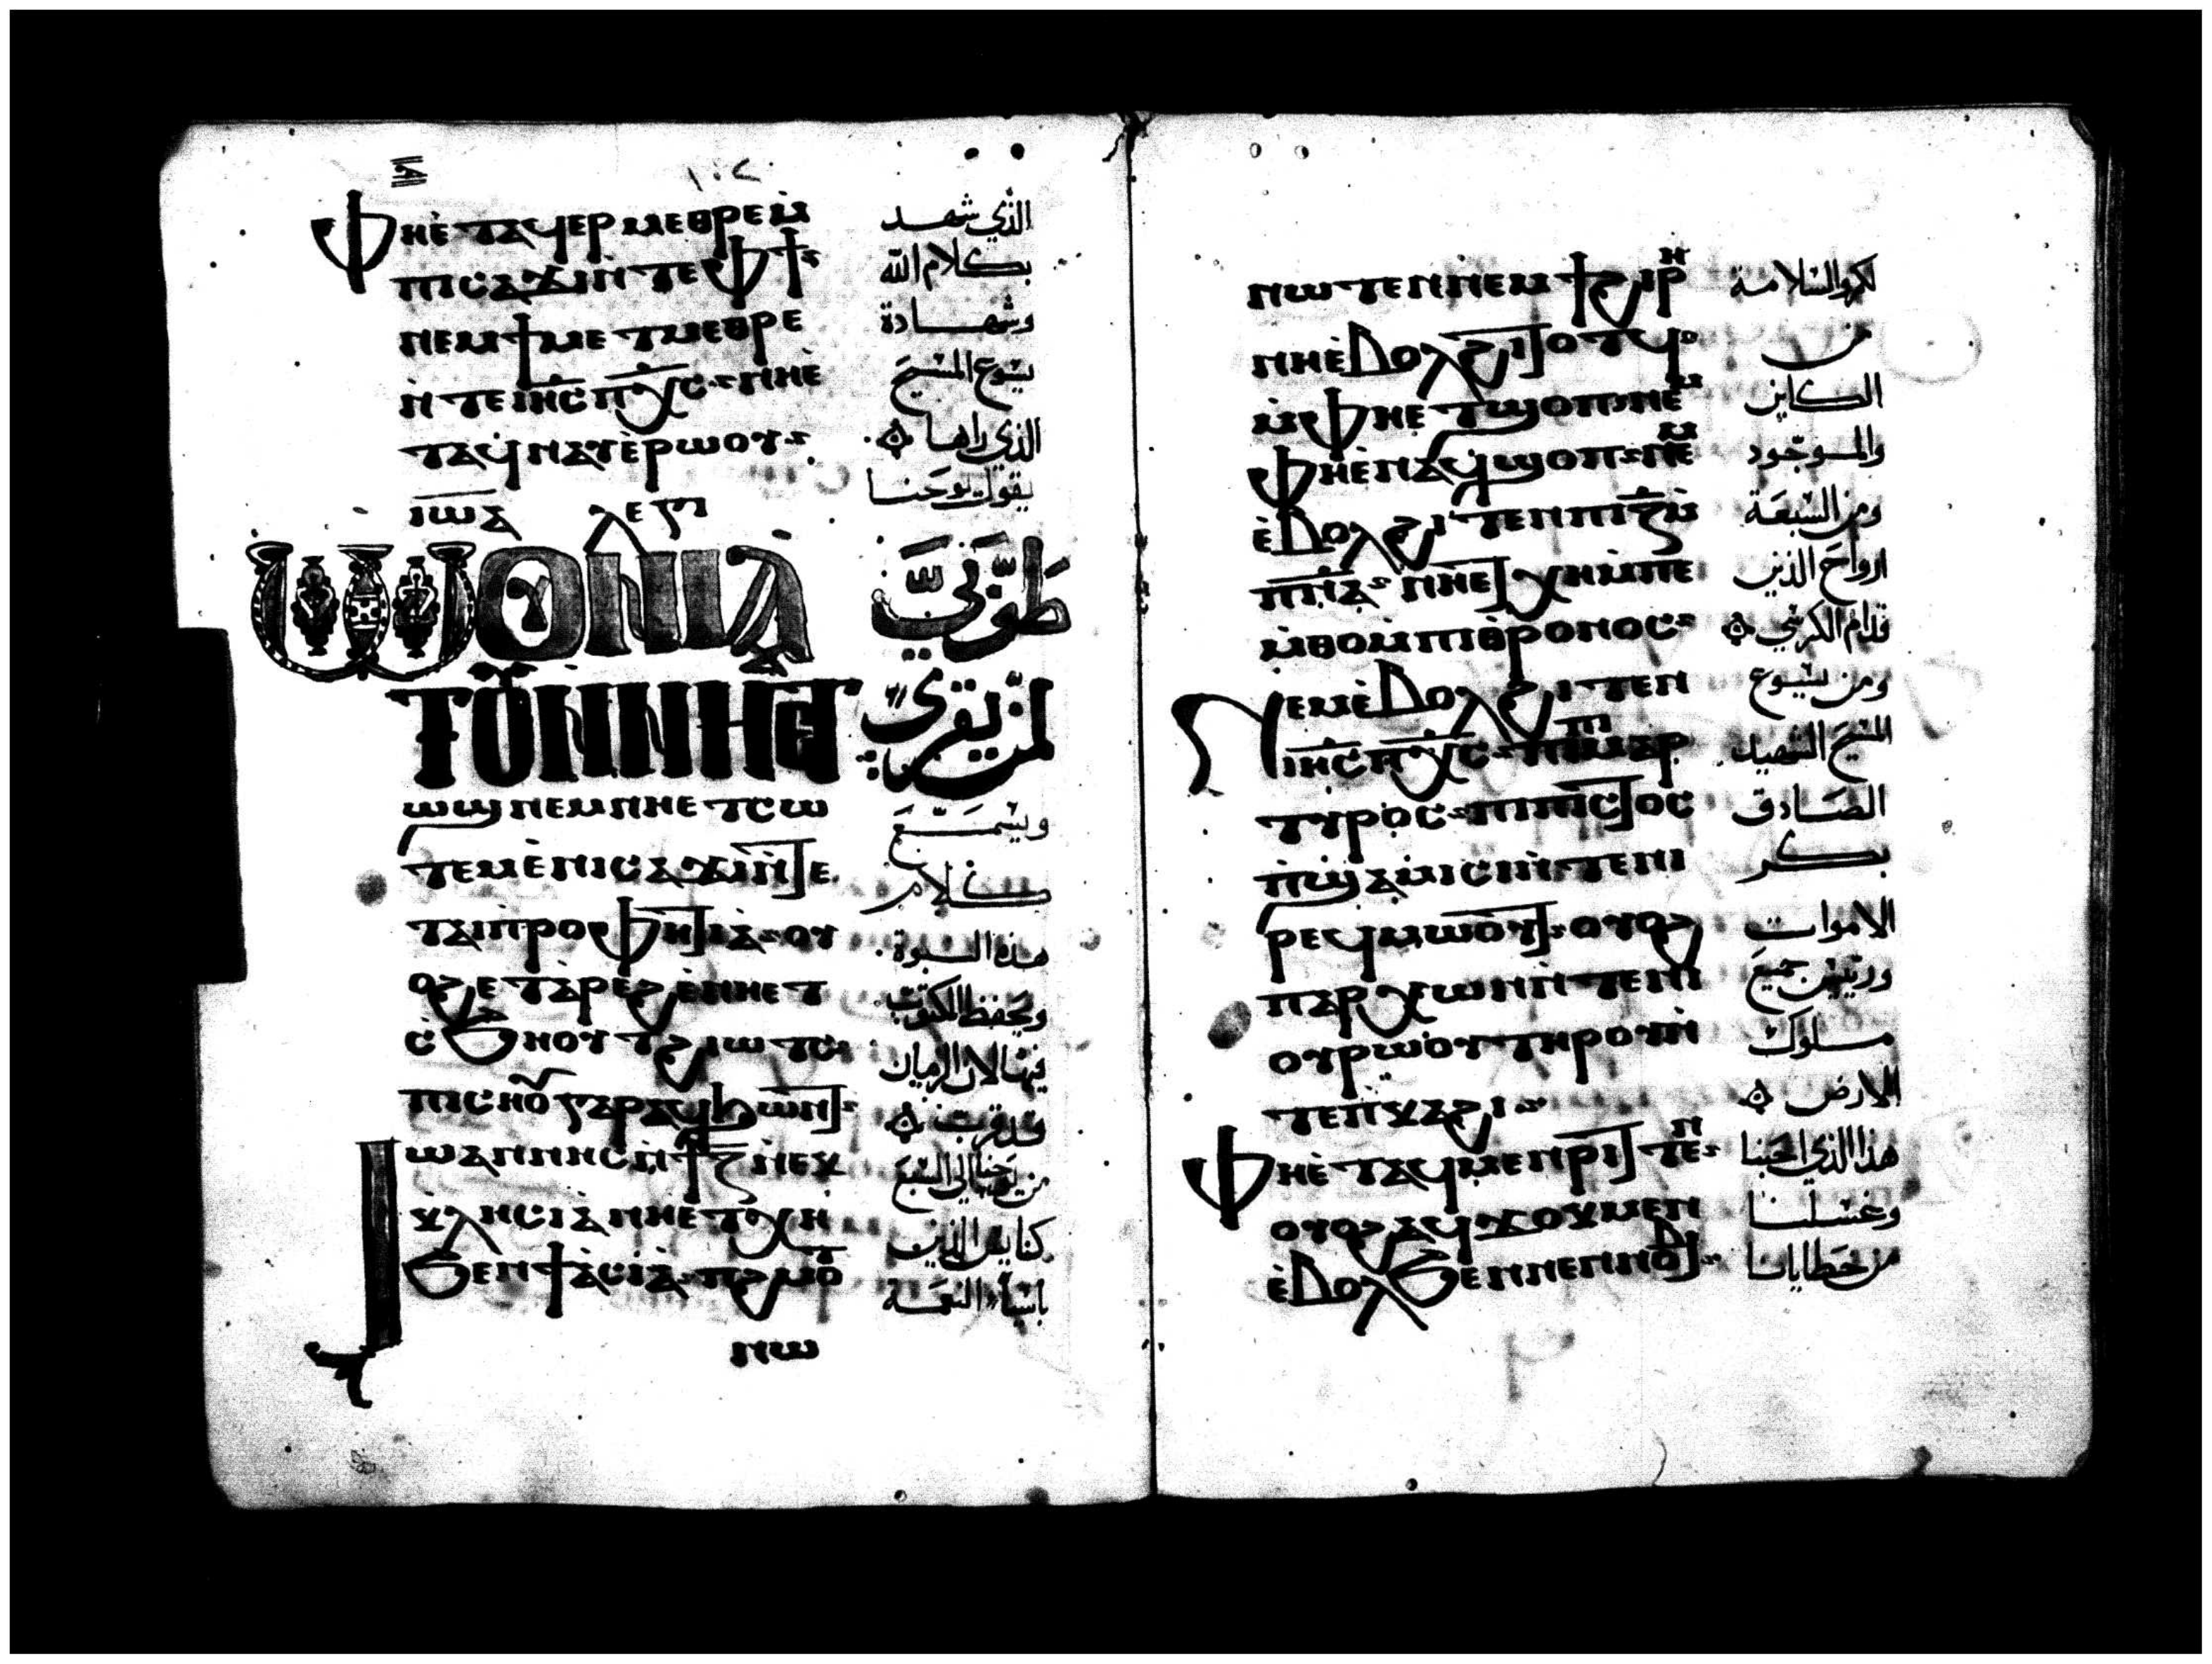 ⲫⲏⲉ̀ⲧⲁϥⲉⲣⲙⲉⲑⲣⲉⲙ̀
ⲡⲓⲥⲁϫⲓⲛ̀ⲧⲉⲫϯ
ⲛⲉⲙϯⲙⲉⲧⲙⲉⲑⲣⲉ
ⲛ̀ⲧⲉⲓⲏⲥⲡⲭⲥ ⲛⲏⲉ̀
ⲧⲁϥⲛⲁⲩⲉ̀ⲣⲱⲟⲩ
ⲓⲱⲁ
ⲱⲟⲩⲛⲓⲁⲧ
ⲧⲟⲩⲛ̀ⲛⲏⲉⲧ
ⲱϣⲛⲉⲙⲛⲏⲉⲧⲥⲱ
ⲧⲉⲙⲉ̀ⲛⲓⲥⲁϫⲓⲛ̀ⲧⲉ
ⲧⲁⲓⲡⲣⲟⲫⲏⲧⲓⲁ̀ ⲟⲩ
ⲟϩⲉⲧⲁ̀ⲣⲉϩⲉ̀ⲛⲏⲉⲧ
ⲥ̀ϧⲏⲟⲩⲧϩⲓⲱⲧⲥ
ⲡⲓⲥⲏⲟⲩⲅⲁⲣⲁϥϧⲱⲛⲧ
ⲓⲱⲁⲛⲛⲏⲥⲛ̀ϯⲍ̅ⲛ̀ⲉⲕ
ⲕⲗⲏⲥⲓⲁ̀ⲛⲏⲉⲧⲭⲏ
ϧⲉⲛϯⲁ̀ⲥⲓⲁ̀ ⲡϩⲙⲟⲧ
ⲛⲱ
الذي شهد
بكلام الله
وشهادة
يسوع المسيح
الذي راها
يقول يوحنا
طوبى
لمن يقرى
ويسمع
كلام
هذه النبوة
ويحفظ المكتوب
فيها لان الزمان
قد قرب
من يوحنا الى السبع
كنايس الذين
باسيا النعمة
ⲛⲱⲧⲉⲛⲛⲉⲙϯϩⲓⲣⲏ
ⲛⲏⲉ̀ⲃⲟⲗϩⲓⲧⲟⲧϥ
ⲙ̀ⲫⲏⲉⲧϣⲟⲡ ⲛⲉⲙ
ⲫⲏⲉⲛⲁϥϣⲟⲡ ⲛⲉⲙ
ⲉ̀ⲃⲟⲗϩⲓⲧⲉⲛⲡⲓⲍ̅ⲙ̀
ⲡⲛⲁ ⲛⲏⲉⲧⲭⲏⲙ̀ⲡⲉ
ⲙ̀ⲑⲟⲙ̀ⲡⲓⲑⲣⲟⲛⲟⲥ
ⲛⲉⲙⲉ̀ⲃⲟⲗϩⲓⲧⲉⲛ
ⲓⲏⲥⲡⲭⲥ ⲡⲓⲙⲁⲣ
ⲧⲩⲣⲟⲥ ⲡⲓⲡⲓⲥⲧⲟⲥ
ⲡ̀ϣⲁⲙⲓⲥⲓⲛ̀ⲧⲉⲛⲓ
ⲣⲉϥⲙⲱⲟⲩⲧ ⲟⲩⲟϩ
ⲡⲁⲣⲭⲱⲛⲛ̀ⲧⲉⲛⲓ
ⲟⲩⲣⲱⲟⲩⲧⲏⲣⲟⲩⲛ̀
ⲧⲉⲡⲕⲁϩⲓ
ⲫⲏⲉ̀ⲧⲁϥⲙⲉⲛⲣⲓⲧⲉⲛ
ⲟⲩⲟϩⲁϥϫⲟⲕⲙⲉⲛ
ⲉ̀ⲃⲟⲗϧⲉⲛⲛⲉⲛⲛⲟⲃⲓ
لكم والسلامة
من
الكاين
والموجود
ومن السبعة
ارواح الذين
قدام الكرسي
ومن يسوع
المسيح الشهيد
الصادق
بكر
الاموات
ورييس جميع
ملوك
الارض
هذا الذي احبنا
وغسلنا
من خطايانا